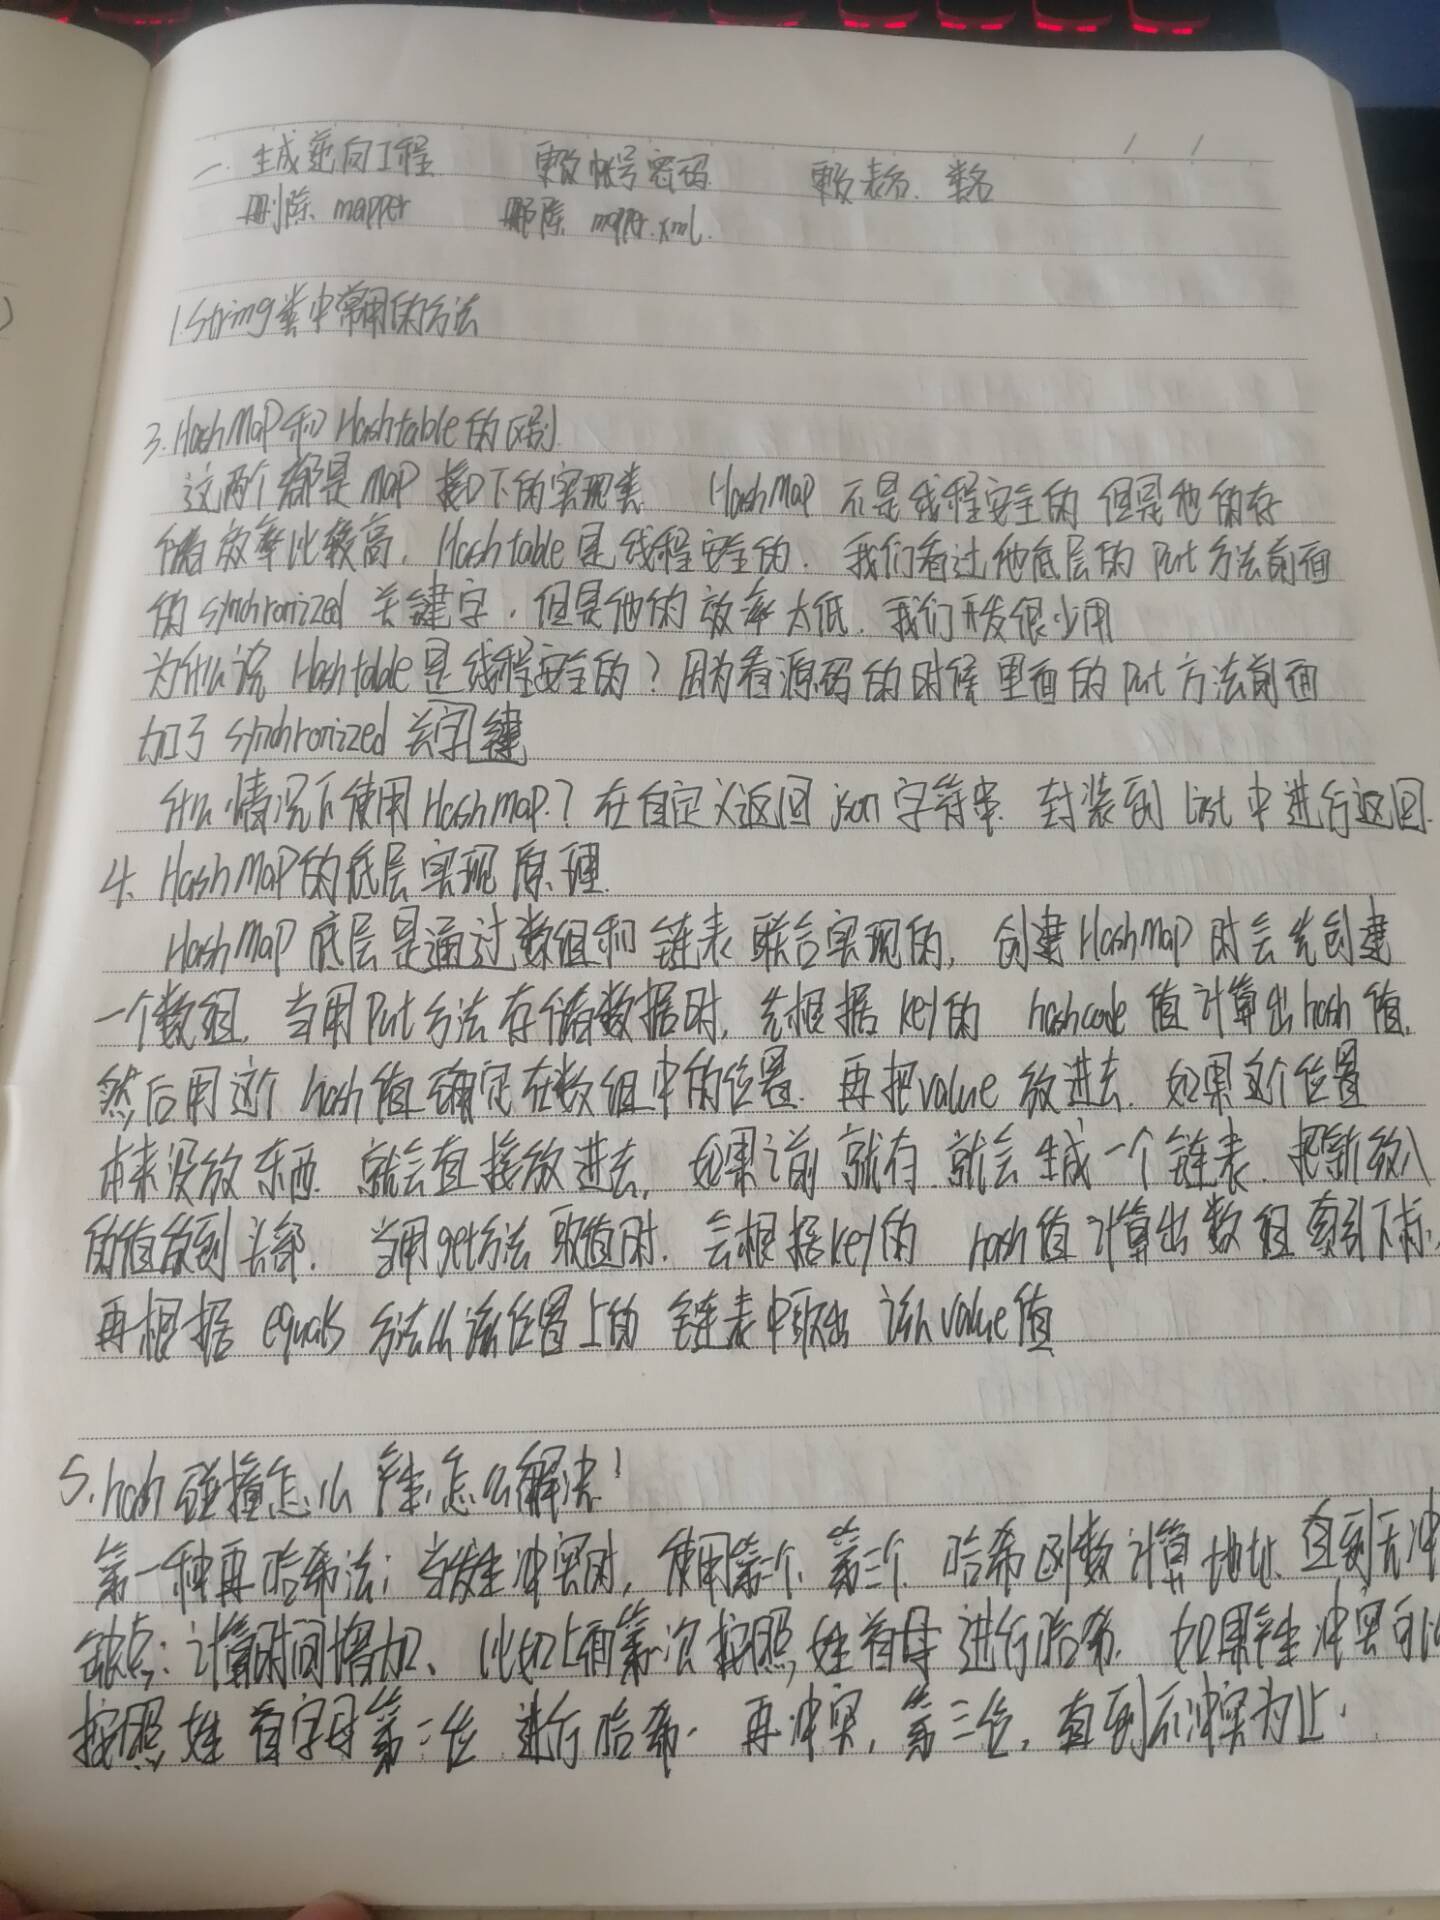 一. 生成逆向工程 更改帐号密码 更改表名. 类名
删除 mapper 删除 mapper.xml.
1.String类中常用的方法
3.HashMap和Hashtable的区别.
这两个都是map 接口下的实现类 HashMap 不是线程安全的 但是他的存
储效率比较高. Hashtable是线程安全的. 我们看过他底层的 put 方法前面
的 synchronized 关键字, 但是他的效率太低. 我们开发很少用
为什么说 Hashtable是线程安全的? 因为看源码的时候里面的 put 方法前面
加了 synchronized 关字键
什么情况下使用HashMap.? 在自定义返回 json 字符串. 封装到 list 中进行返回.
4. HashMap的底层实现原理.
HashMap 底层是通过数组和链表联合实现的, 创建HashMap 时会先创建
一个数组, 当用put方法存储数据时, 先根据 key的 hashcode 值计算出hash值.
然后用这个 hash值确定在数组中的位置. 再把value 放进去. 如果这个位置
本来没放东西. 就会直接放进去, 如果之前就有. 就会生成一个链表. 把新放入
的值放到头部. 当用get方法取值时. 会根据key的 hash值计算出数组索引下标,
再根据 equals 方法从该位置上的 链表中取出 该 value值
5.hash 碰撞怎么产生,怎么解决!
第一种再哈希法: 当发生冲突时, 使用第二个, 第三个. 哈希函数计算地址. 直到无冲
缺点: 计算时间增加、比如上面第一次按照姓首母进行哈希. 如果产生冲突可以
按照姓首字母第二位进行哈希. 再冲突, 第三位, 直到不冲突为止.